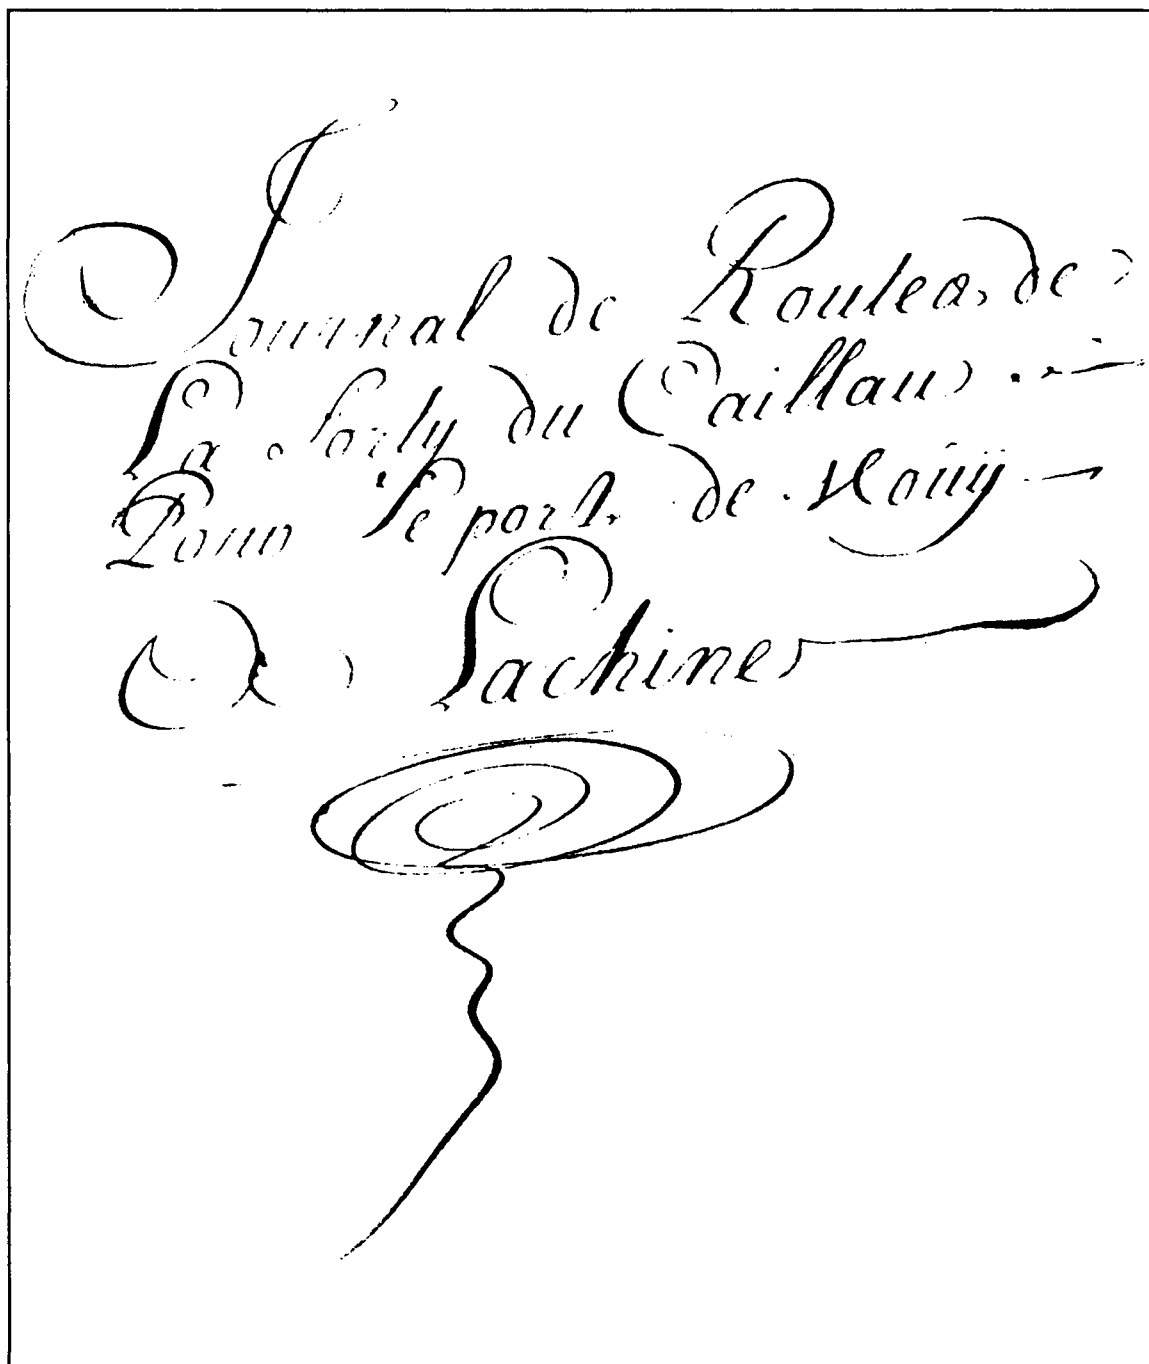 Journal de Routes, de
La Sorty du Caillau
Pour Le port de
A Lachine